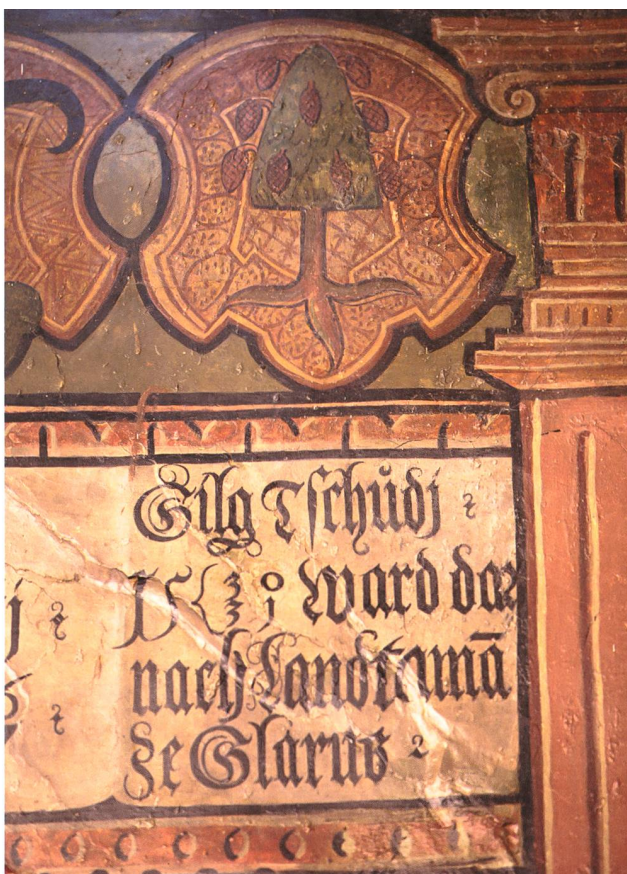 Gilg Tschůdj
15{30 31 ward dar
nach Landtamā
ze Glarus